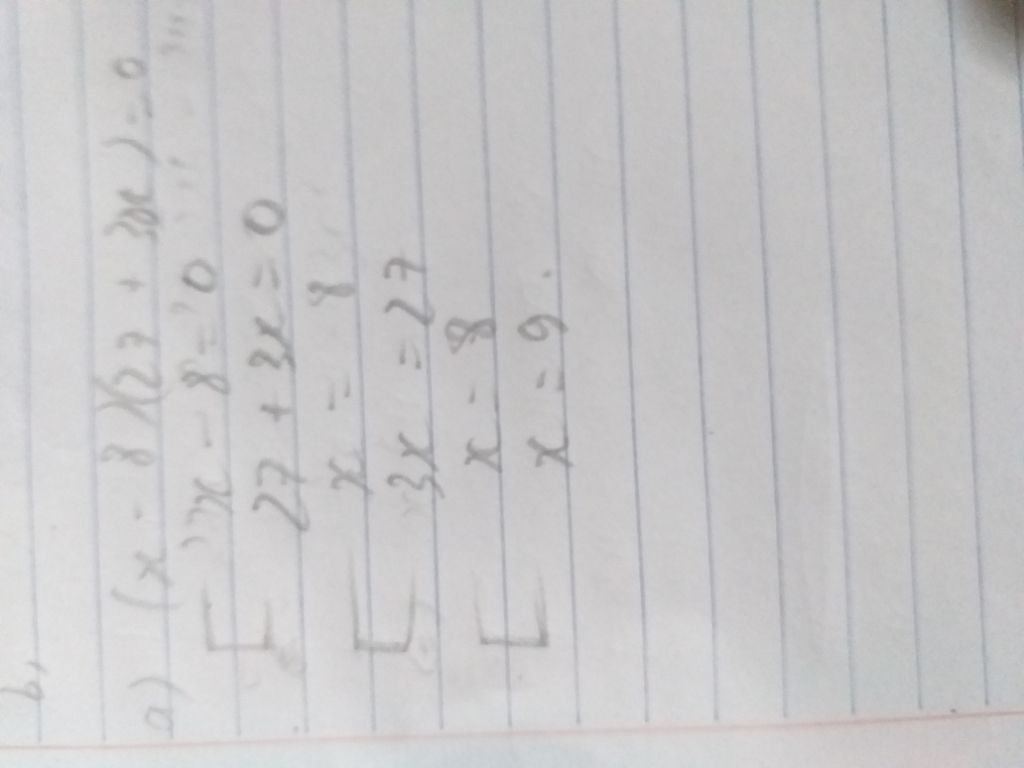 b,
a) (x - 8)(27 + 3x) = 0
[ x - 8 = 0
27 + 3x = 0
[ x = 8
3x = 27
[ x = 8
x = 9.